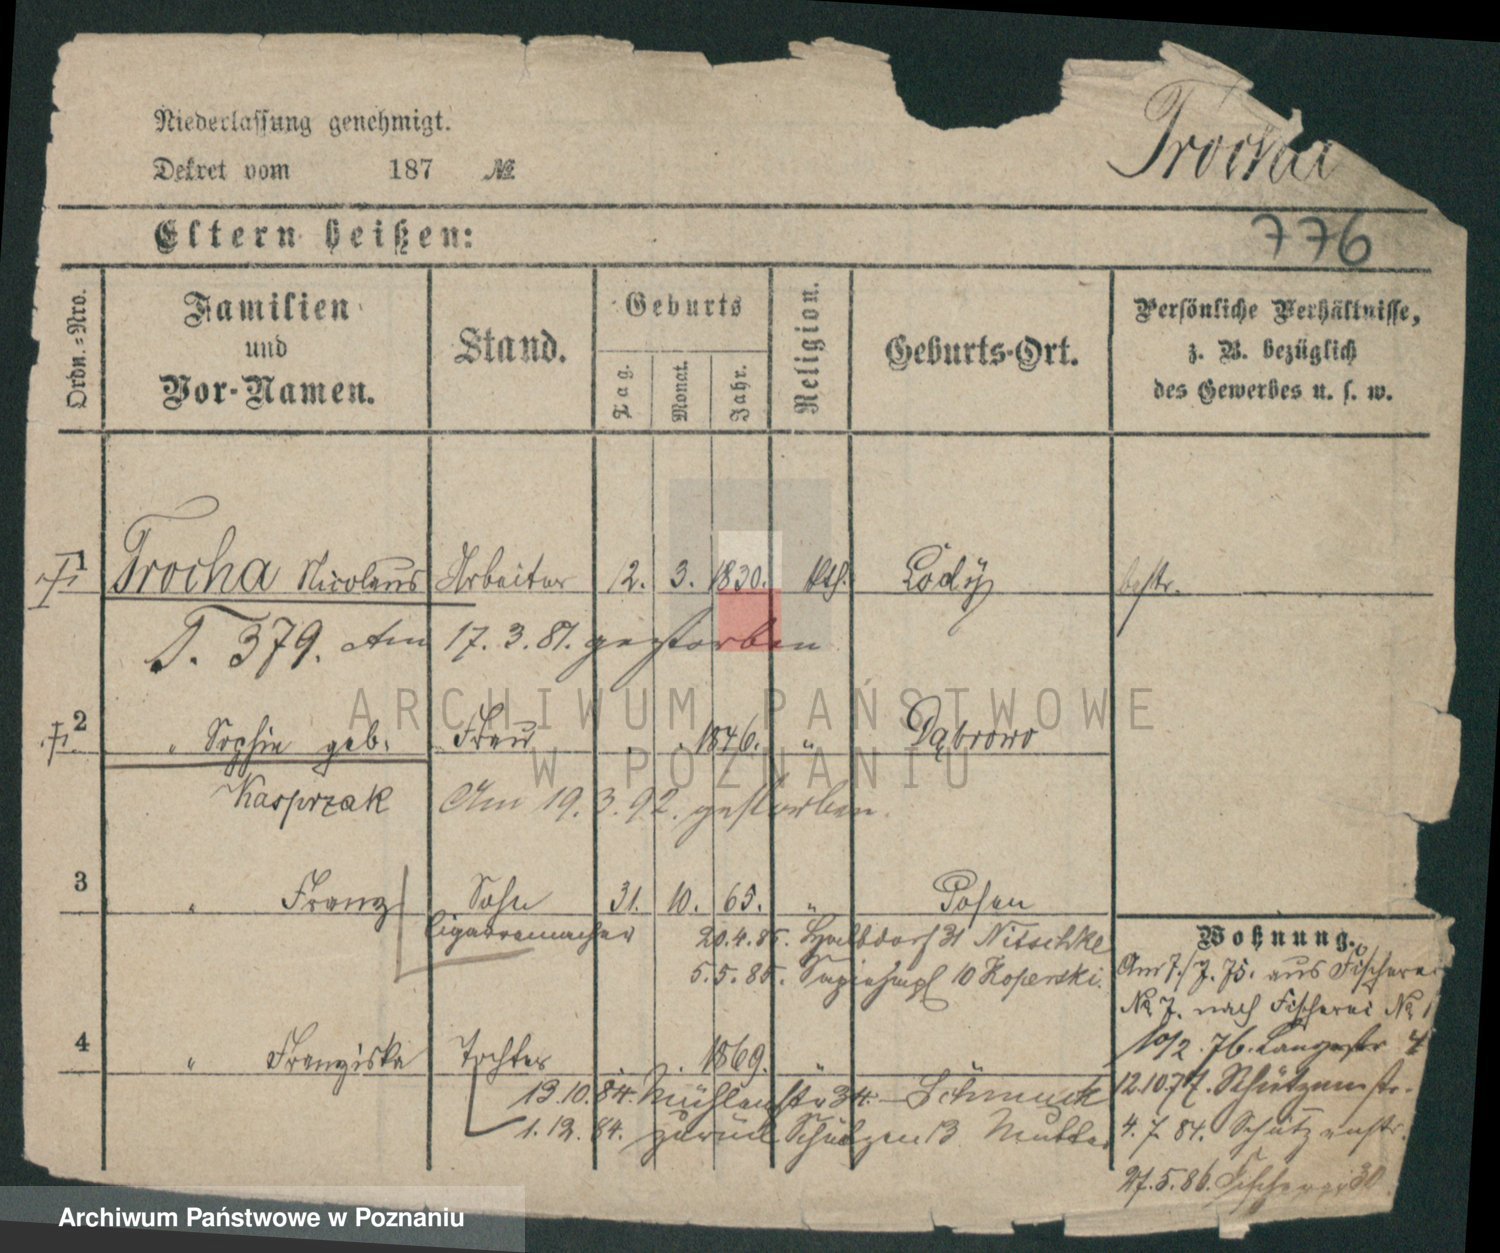 Niederlassung genehmigt.
Trocha
Dekret vom 187 №
Eltern heißen:
776
Ordn.=Nro.
Familien und Vor-Namen.
Stand.
Geburts
Tag.
Monat.
Jahr.
Religion.
Geburts-Ort.
Persönliche Verhältnisse,
z. B. bezüglich
des Gewerbes u. s. w.
1 Trocha Nicolaus Arbeiter 2. 3. 1830. kth. bestr.
T. 379. Am 17. 3. 81. gestorben
ARCHIWUM PAŃSTWOWE
2 " Sophie geb. Frau . . 1846. " Dąbrowo
W POZNANIU
Kasprzak Am 19. 3. 92. gestorben.
3 " Franz Sohn 31. 10. 65. " Posen
Cigarremacher 20.4.85. Halbdorf 31 Nitschke
Wohnung.
5.5.85. 10 Koperski.
Am 7./7. 75. aus Fischerei
№ 7. nach Fischerei № 1
4 " Franziska Tochter . . 1869. "
10/2. 76. Langestr 4
13.10.84. Mühlenstr 34.
12.10.77. Schützenstr.
1.12.84. zurück Schützen 13 Mutter
4. 7. 84. Schützenstr.
27.5.86. Fischerei 30
Archiwum Państwowe w Poznaniu